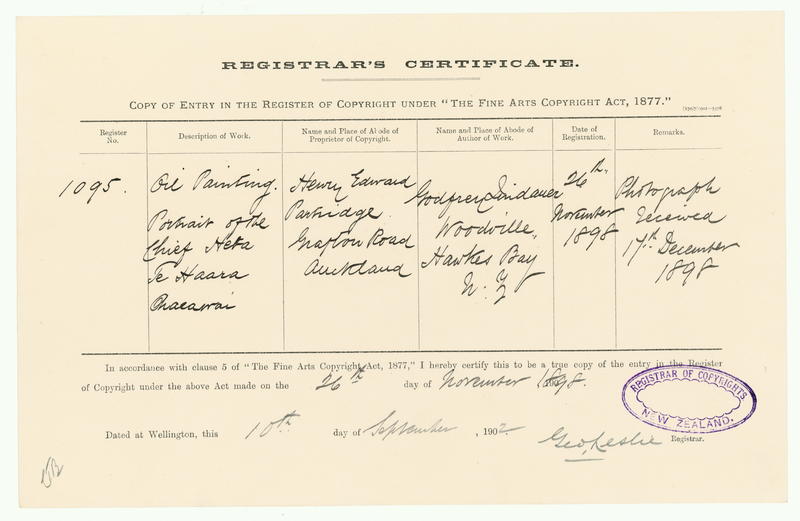 REGISTRAR'S CERTIFICATE.
COPY OF ENTRY IN THE REGISTER OF COPYRIGHT UNDER "THE FINE ARTS COPYRIGHT ACT, 1877."
Register
No.
Description of Work.
Name and Place of Abode of
Proprietor of Copyright.
Name and Place of Abode of
Author of Work.
Date of
Registration.
Remarks.
1095.
Oil Painting.
Portrait of the
Chief Heta
Te Haara
Henry Edward
Partridge
Grafton Road
Auckland
Godfrey Lindauer
Woodville,
Hawkes Bay
N. Z
26th
November
1898
Photograph
received
17th December
1898
In accordance with clause 5 of "The Fine Arts Copyright Act, 1877," I hereby certify this to be a true copy of the entry in the Register
of Copyright under the above Act made on the 26th day of November 1898.
REGISTRAR OF COPYRIGHTS
NEW ZEALAND.
Dated at Wellington, this 10th day of September, 1902. Geo. Leslie Registrar.